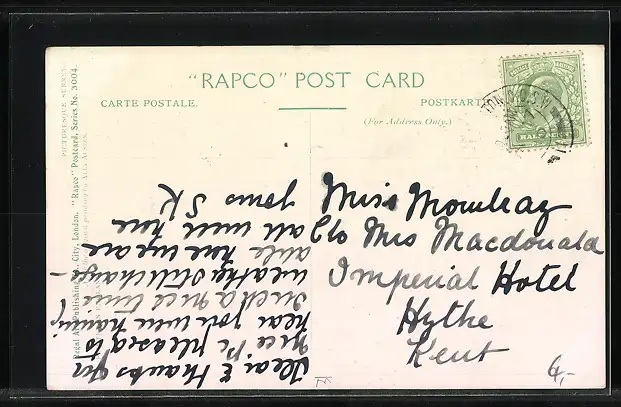 "RAPCO" POST CARD
CARTE POSTALE.
POSTKARTE
(For Address Only.)
PICTURESQUE SURREY
"Rapco" Postcard, Series No. 3004.
Regal Art Publishing Co., City, London.
LONDON S.W.
HALFPENNY
Miss
C/o Mrs Macdonald
Imperial Hotel
Hythe
Kent
Thanks for
nice Pc pleased to
hear you were having
such a nice time
weather still change-
able here we are
all well here
Yours S K
4,-